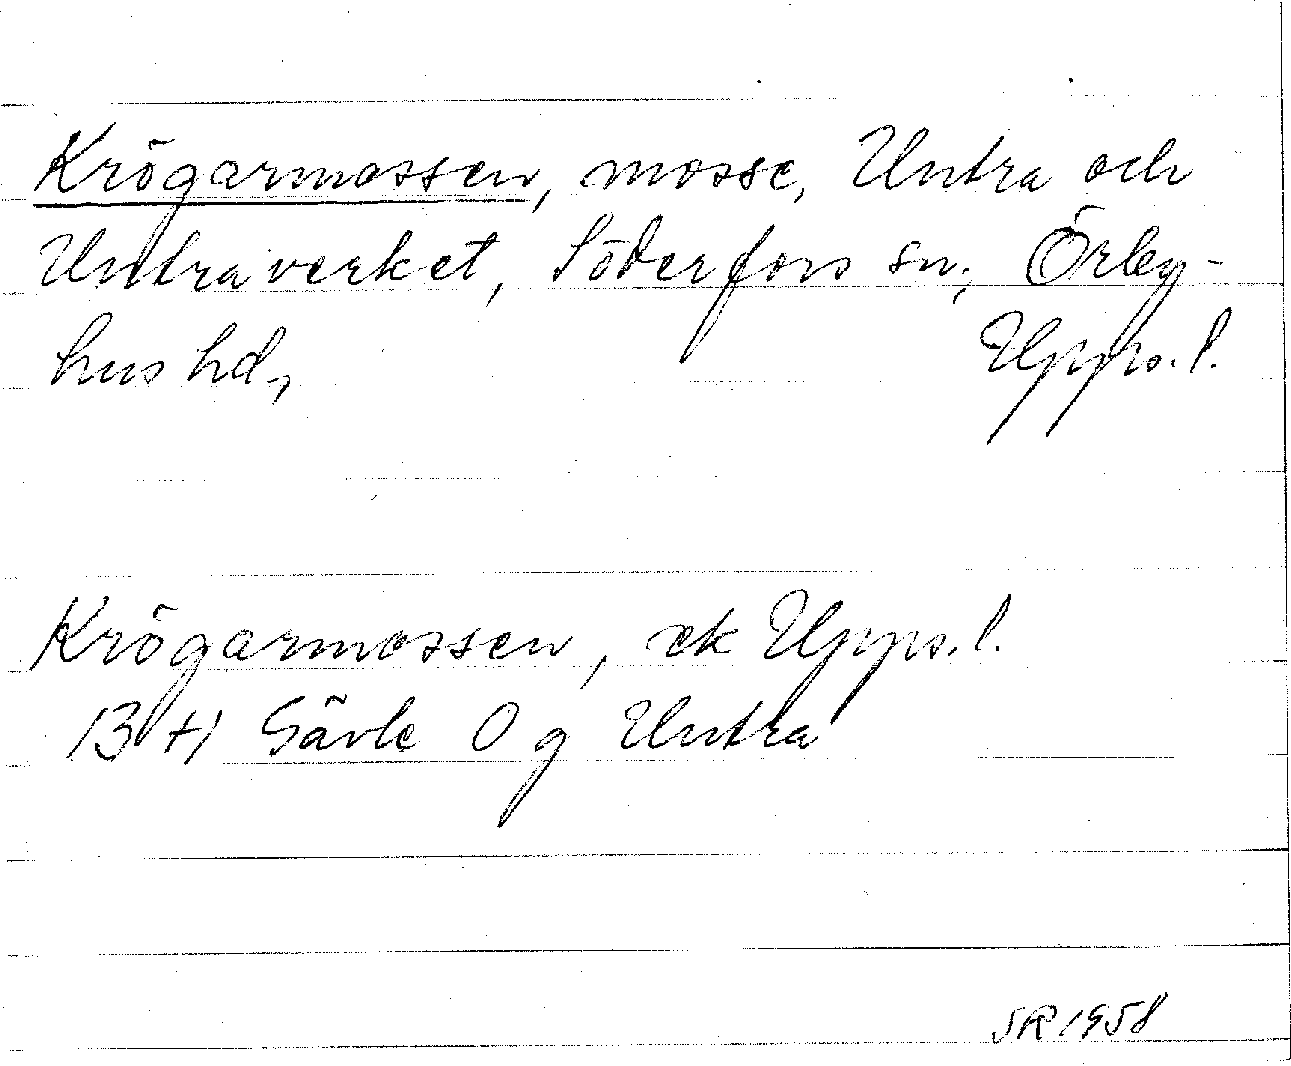 Krögarmossen, mosse, Untra och
Untraverket, Söderfors sn, Örby-
hus hd, Upps. l.
Krögarmossen, ek Upps. l.
13 H Gävle O g Untra
SR 1958